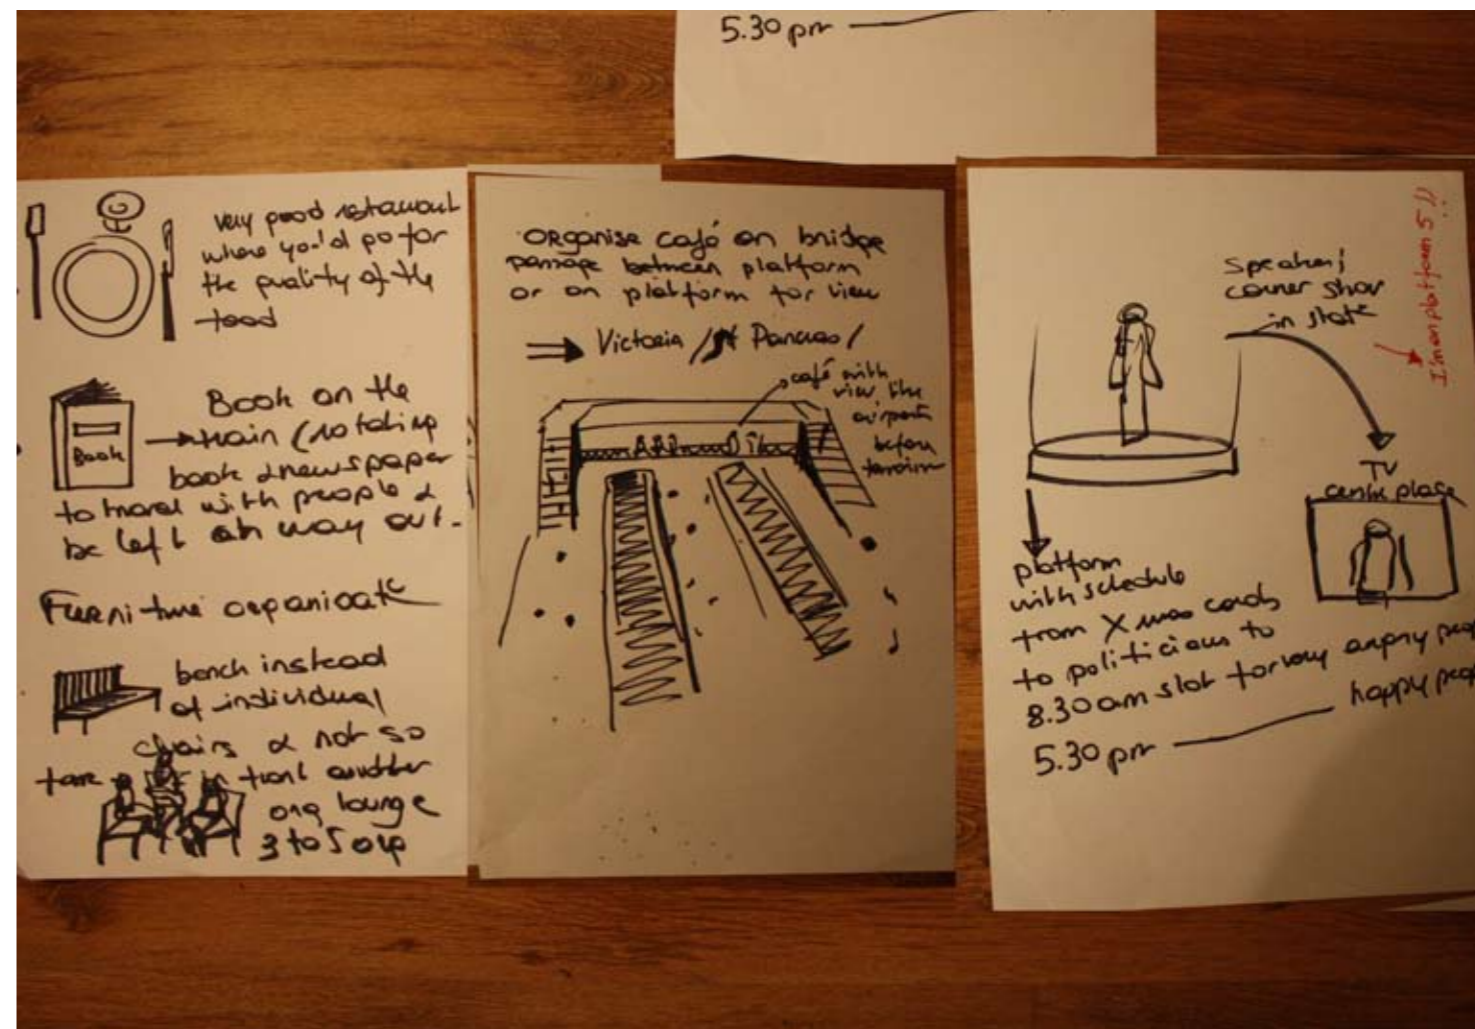 5.30 pm
very good restaurant
where you'd go for
the quality of the
food
Book on the
train (rotating
book & newspaper
to travel with people &
be left on way out.
Book
Furniture organisat
bench instead
of individual
chairs & not so
in front another
long lounge
3 to 5 our
ORganise café on bridge
passage between platform
or on platform for view
Victoria / St Pancras /
café with
view like
airport
before
speakers
corner show
in stat
I'm on platform 5 !!
TV
centre place
platform
with schedule
from Xmas cards
to politicians to
8.30 am slot for very angry peo
5.30 pm happy peop